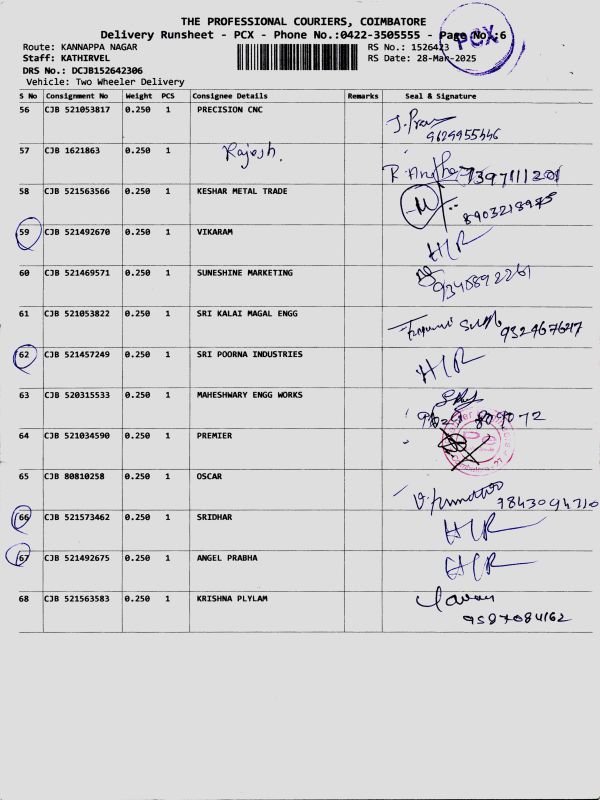 THE PROFESSIONAL COURIERS, COIMBATORE
Delivery Runsheet - PCX - Phone No.:0422-3505555 - Page No.:6
PCX
Route: KANNAPPA NAGAR
RS No.: 1526423
Staff: KATHIRVEL
RS Date: 28-Mar-2025
DRS No.: DCJB152642306
Vehicle: Two Wheeler Delivery
S No Consignment No Weight PCS Consignee Details Remarks Seal & Signature
56 CJB 521053817 0.250 1 PRECISION CNC
9629955446
57 CJB 1621863 0.250 1 Rajesh.
7397111201
58 CJB 521563566 0.250 1 KESHAR METAL TRADE
8903218975
59 CJB 521492670 0.250 1 VIKARAM H/R
60 CJB 521469571 0.250 1 SUNESHINE MARKETING
9340892261
61 CJB 521053822 0.250 1 SRI KALAI MAGAL ENGG
9324676217
62 CJB 521457249 0.250 1 SRI POORNA INDUSTRIES H/R
63 CJB 520315533 0.250 1 MAHESHWARY ENGG WORKS
64 CJB 521034590 0.250 1 PREMIER
65 CJB 80810258 0.250 1 OSCAR
9843094310
66 CJB 521573462 0.250 1 SRIDHAR H/R
67 CJB 521492675 0.250 1 ANGEL PRABHA H/R
68 CJB 521563583 0.250 1 KRISHNA PLYLAM
9587084162